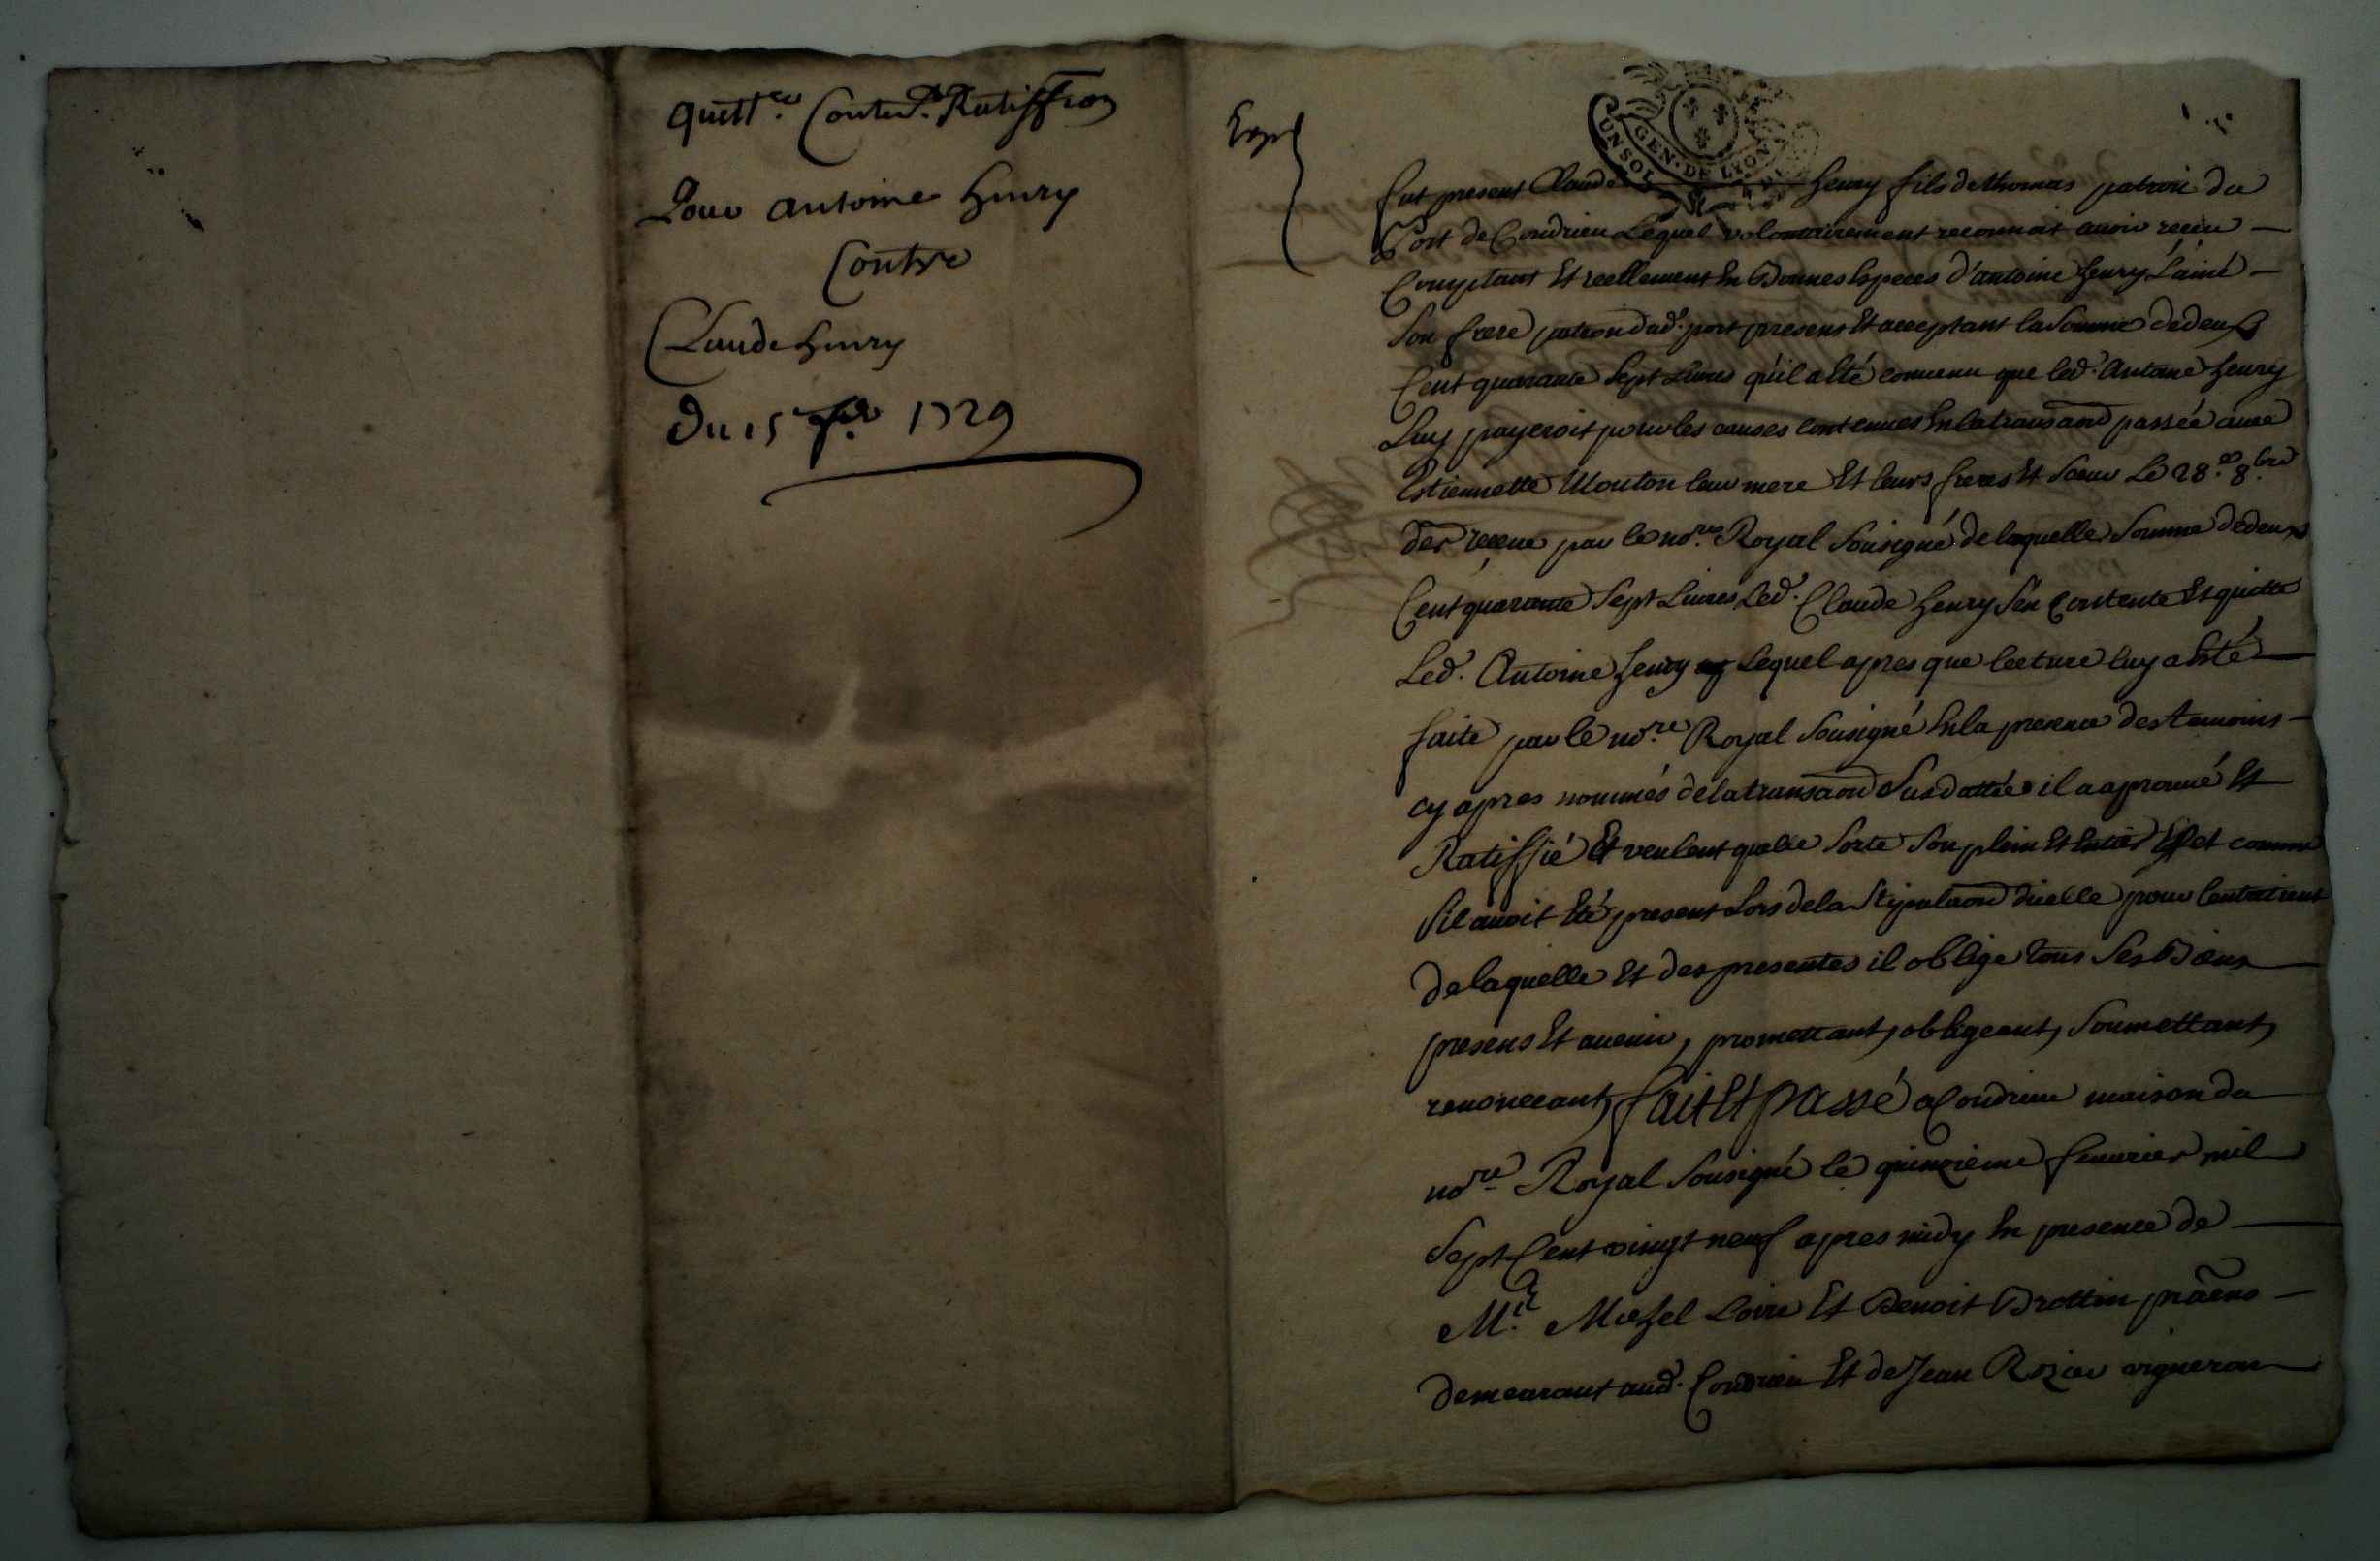 Quitt.ce Conten.t Ratiff.ion
Pour antoine henry
Contre
Claude henry
Du 15 f.er 1729
Exp.
UN SOL
GEN. DE LYON
fut present Claude henry fils de thomas patron du
Port de Condrieu Lequel volontairement reconnoit auoir receu
Comptant Et reellement En Bonnes Especes d'antoine henry L'ainé
Son frere patron dud. port present Et acceptant la Somme de deux
Cent quarante Sept Liures qu'il a Eté conuenu que led. Antoine henry
Luy payeroit pour les causes contenues En la transaon passée auec
Estiennette Mouton leur mere Et leurs freres Et Soeur Le 28.e 8.bre
der receue par le no.re Royal Sousigné de laquelle Somme de deux
Cent quarante Sept Liures Led. Claude henry S'en Contente Et quitte
Led. Antoine henry Lequel apres que lecture luy a Eté
faite par le no.re Royal Sousigné En la presence des temoins
cy apres nommés de la transaon Susdattée il a aprouué Et
Ratiffié Et veulent quelle Sorte Son plein Et Entier Effet comme
S'il auoit Eté present Lors de la Stipulaon d'icelle pour l'entretient
de laquelle Et des presentes il oblige tous Ses Biens
presens Et auenir, promettant, obligeant, Soumettant,
renonceant, fait Et passé a Condrieu maison du
no.re Royal Sousigné le quinzieme feurier mil
Sept Cent vingt neuf apres midy En presence de
M.e Michel Loire Et Benoit Brottin pratiens
demeurant aud. Condrieu Et de Jean Rozier vigneron